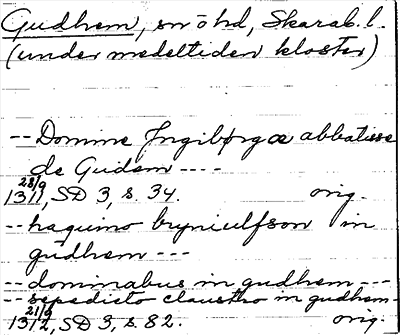 Gudhem, sn o hd, Skarab. l.
(under medeltiden kloster)
-- Domine Ingibørgæ abbatisse
de Gudem ----
28/9
1311, SD 3, s. 34. orig.
-- haquino bryniulfson in
gudhem ---
-- dominabus in gudhem ---
-- sepedicto claustro in gudhem -
21/9
1312, SD 3, s. 82. orig.